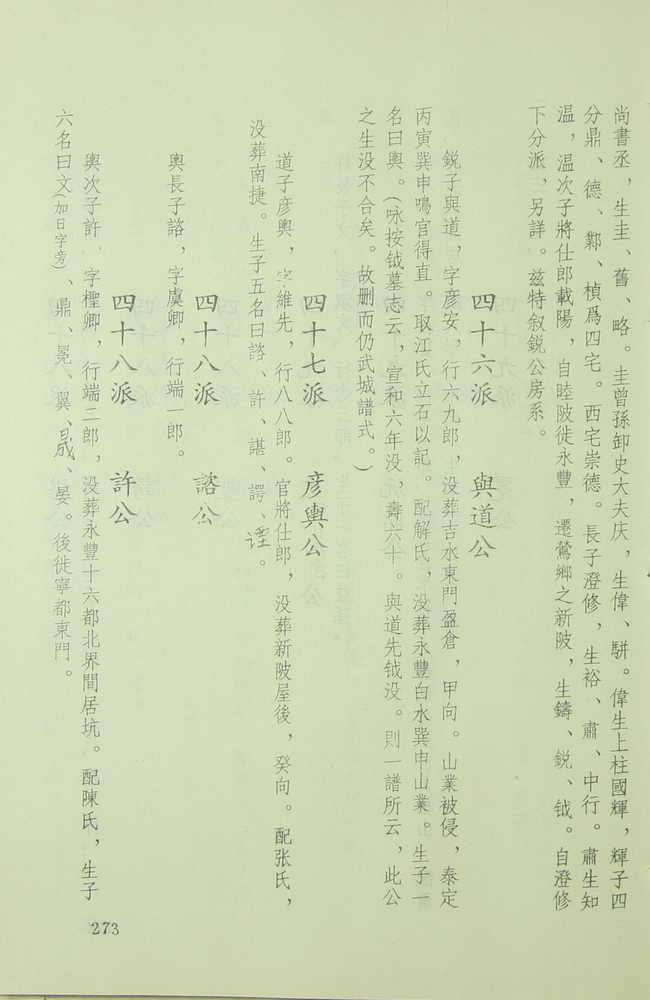 尚書丞，生圭、舊、略。圭曾孫卸史大夫庆，生偉、駢。偉生上柱國輝，輝子四
分鼎、德、鄴、楨爲四宅。西宅崇德。長子澄修，生裕、肅、中行。肅生知
温，温次子將仕郎載陽，自睦陂徙永豐，遷鶯鄉之新陂，生鑄、鋭、钺。自澄修
下分派，另詳。兹特叙鋭公房系。
四十六派 與道公
鋭子與道，字彦安，行六九郎，没葬吉水東門盈倉，甲向。山業被侵，泰定
丙寅巽申鳴官得直。取江氏立石以記。配解氏，没葬永豐白水巽申山業。生子一
名曰輿。（咏按钺墓志云，宣和六年没，壽六十。與道先钺没。則一譜所云，此公
之生没不合矣。故删而仍武城譜式。）
四十七派 彦輿公
道子彦輿，字維先，行八八郎。官將仕郎，没葬新陂屋後，癸向。配张氏，
没葬南捷。生子五名曰諮、許、諶、諤、諲。
四十八派 諮公
輿長子諮，字虞卿，行端一郎。
四十八派 許公
輿次子許，字樫卿，行端二郎，没葬永豐十六都北界間居坑。配陳氏，生子
六名曰文（加日字旁）、鼎、冕、翼、晟、晏。後徙寧都東門。
273